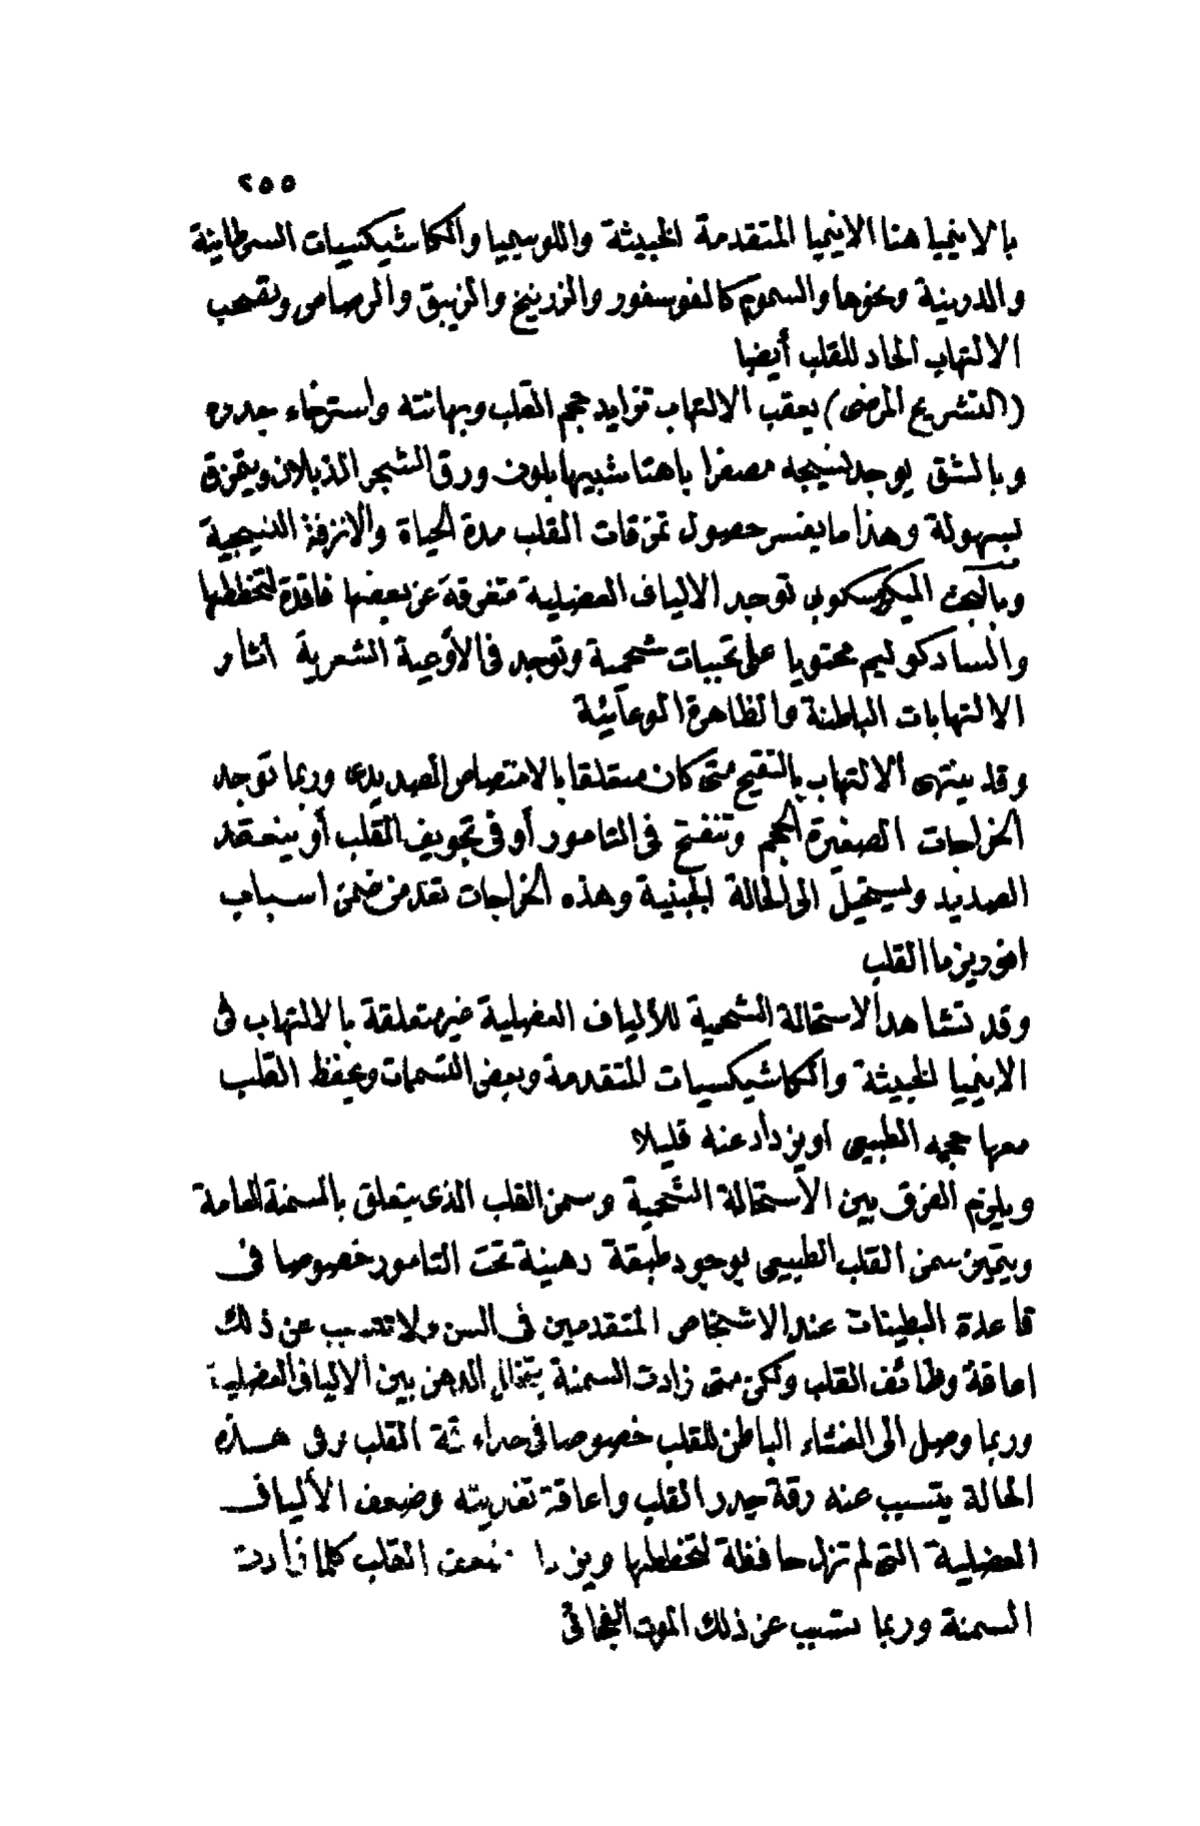 ٢٥٥
بالانيميا هنا الانيميا المتقدمة الخبيثة واللوسيميا والكاشيكسيات السرطانية
والدرنية ونحوها والسموم كالفوسفور والزرنيخ والزيبق والرصاص وتصحب
الالتهاب الحاد للقلب أيضا
(التشريح المرضى) يعقب الالتهاب تزايد حجم القلب وبهاتته واسترخاء جدره
وبالشق يوجد نسيجه مصفرا باهتا شبيها بلون ورق الشجر الذبلان ويتمزق
بسهولة وهذا ما يفسر حصول تمزقات القلب مدة الحياة والانزفة النسيجية
وبالبحث الميكروسكوبى توجد الالياف العضلية متفرقة عن بعضها فاقدة لتخططها
والساركوليم محتويا على تحببات شحمية وتوجد فى الأوعية الشعرية اثار
الالتهابات الباطنة والظاهرة الوعائية
وقد ينتهى الالتهاب بالتقيح متى كان متعلقا بالامتصاص الصديدى وربما توجد
الخراجات الصغيرة الحجم وتنفتح فى التامور أو فى تجويف القلب أو ينعقد
الصديد ويستحيل الى الحالة الجبنية وهذه الخراجات تعد من ضمن اسباب
انوريزما القلب
وقد تشاهد الاستحالة الشحمية للألياف العضلية غير متعلقة بالالتهاب فى
الانيميا الخبيثة والكاشيكسيات المتقدمة وبعض التسممات ويحفظ القلب
معها حجمه الطبيعى او يزداد عنه قليلا
ويلزم الفرق بين الاستحالة الشحمية وسمن القلب الذى يتعلق بالسمنة العامة
ويتميز سمن القلب الطبيعى بوجود طبقة دهنية تحت التامور خصوصا فى
قاعدة البطينات عند الاشخاص المتقدمين فى السن ولا تتسبب عن ذلك
اعاقة وظائف القلب ولكن متى زادت السمنة يتخلل الدهن بين الالياف العضلية
وربما وصل الى الغشاء الباطن للقلب خصوصا فى حداءة القلب وفى هذه
الحالة يتسبب عنه رقة جدر القلب واعاقة تغذيته وضعف الألياف
العضلية التى لم تزل حافظة لتخططها ويزداد ضعف القلب كلما زادت
السمنة وربما تسبب عن ذلك الموت الفجائى